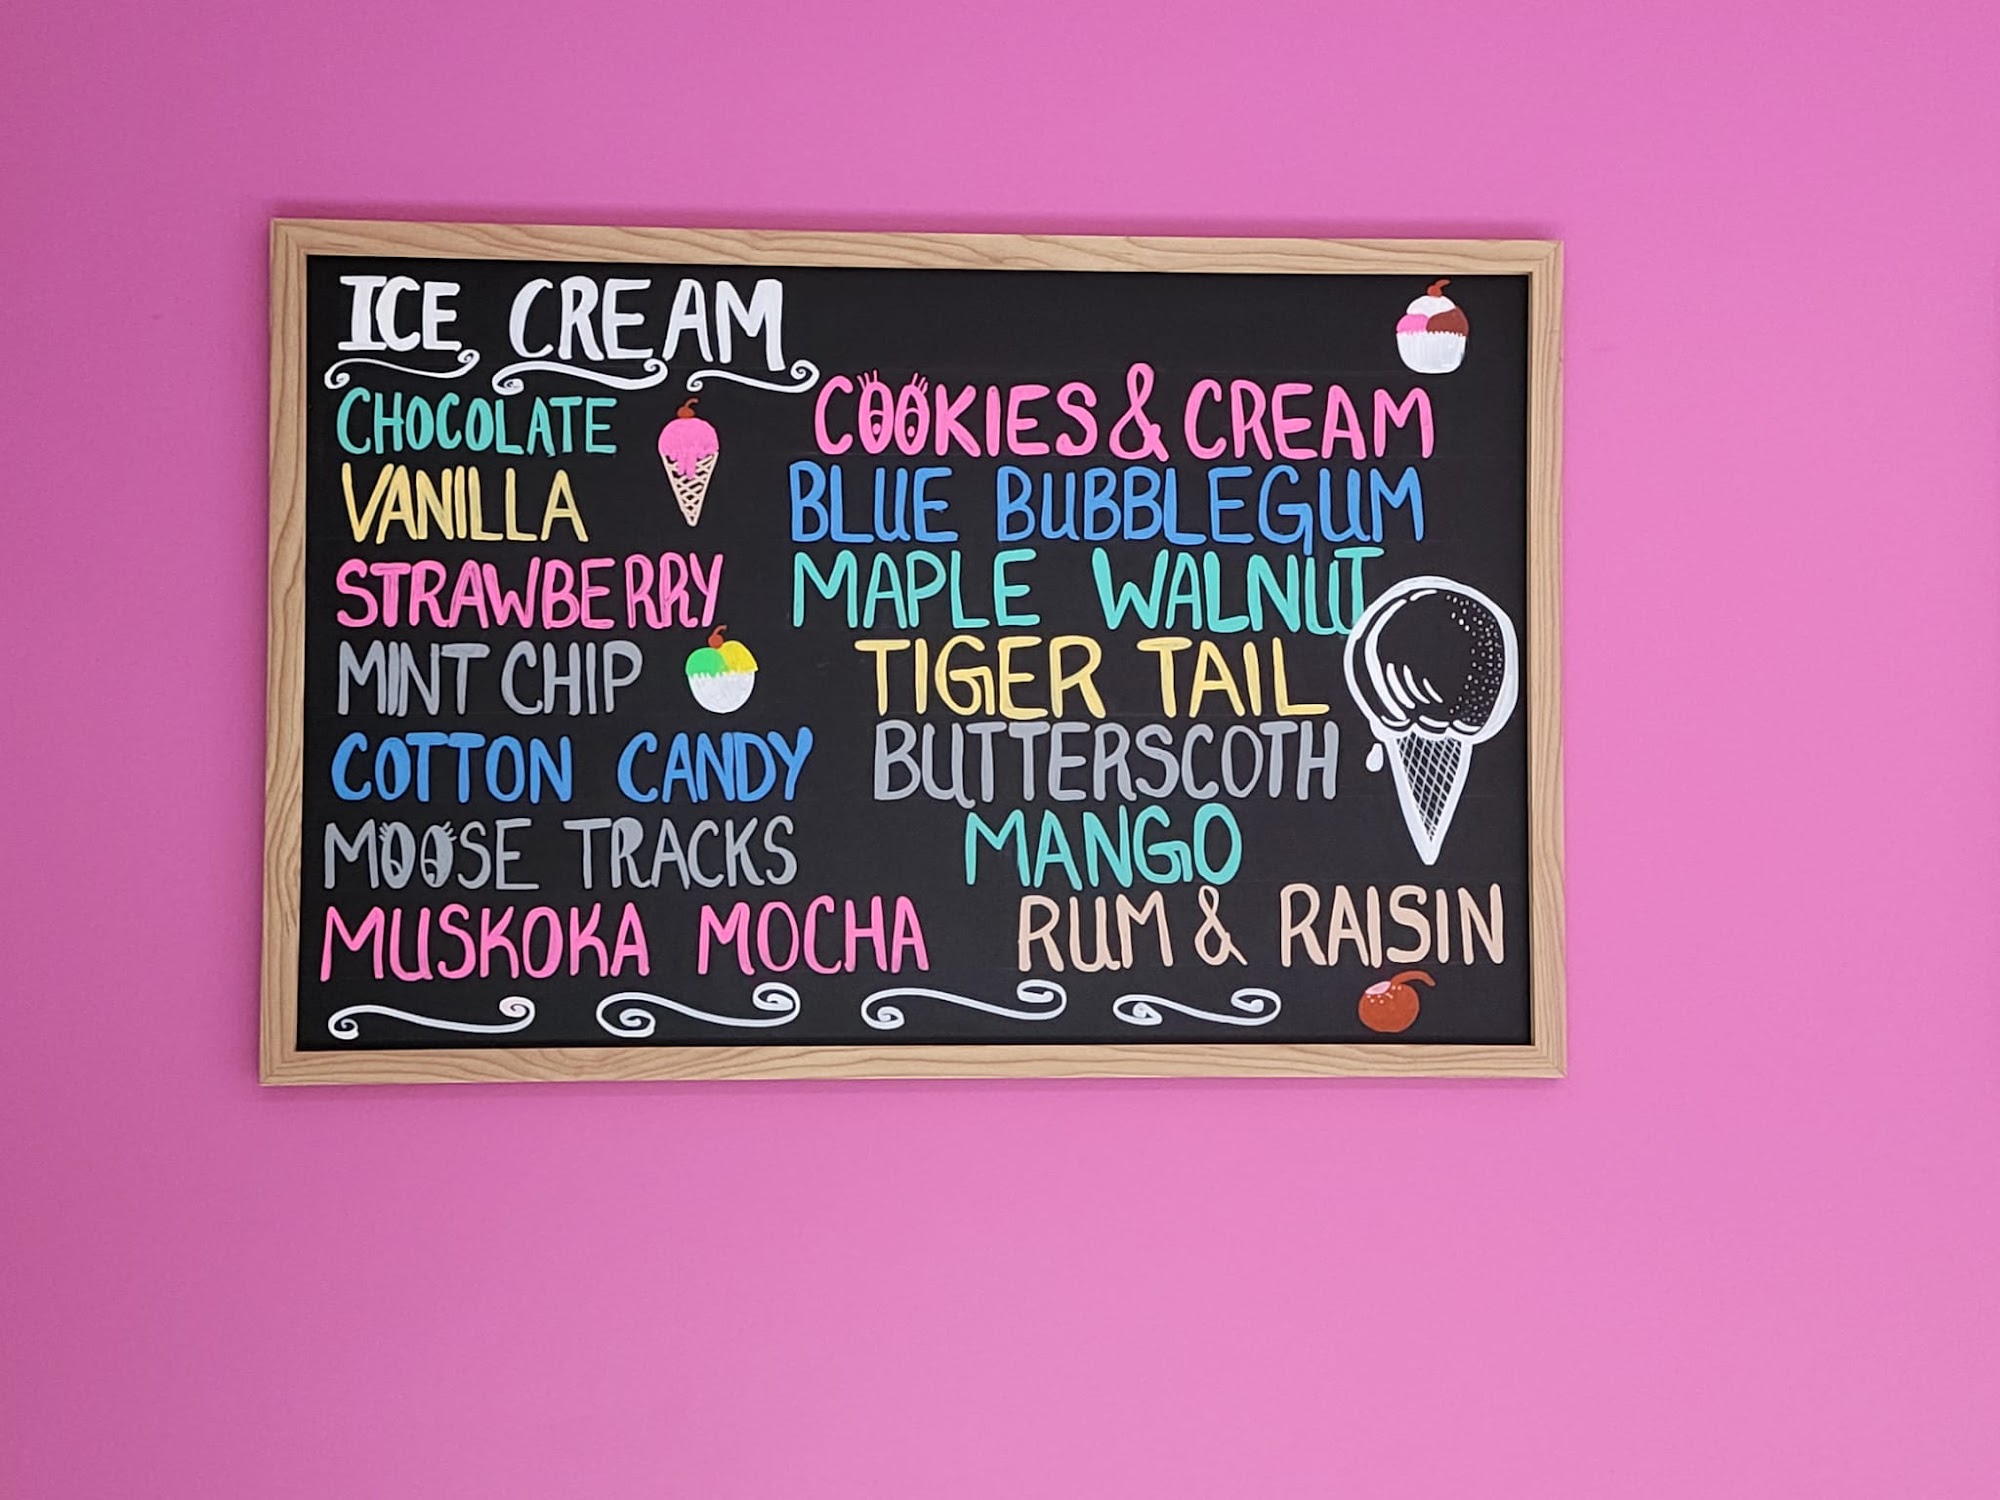 ICE CREAM
CHOCOLATE
VANILLA
STRAWBERRY
MINT CHIP
COTTON CANDY
MOOSE TRACKS
MUSKOKA MOCHA
COOKIES & CREAM
BLUE BUBBLEGUM
MAPLE WALNUT
TIGER TAIL
BUTTERSCOTH
MANGO
RUM & RAISIN